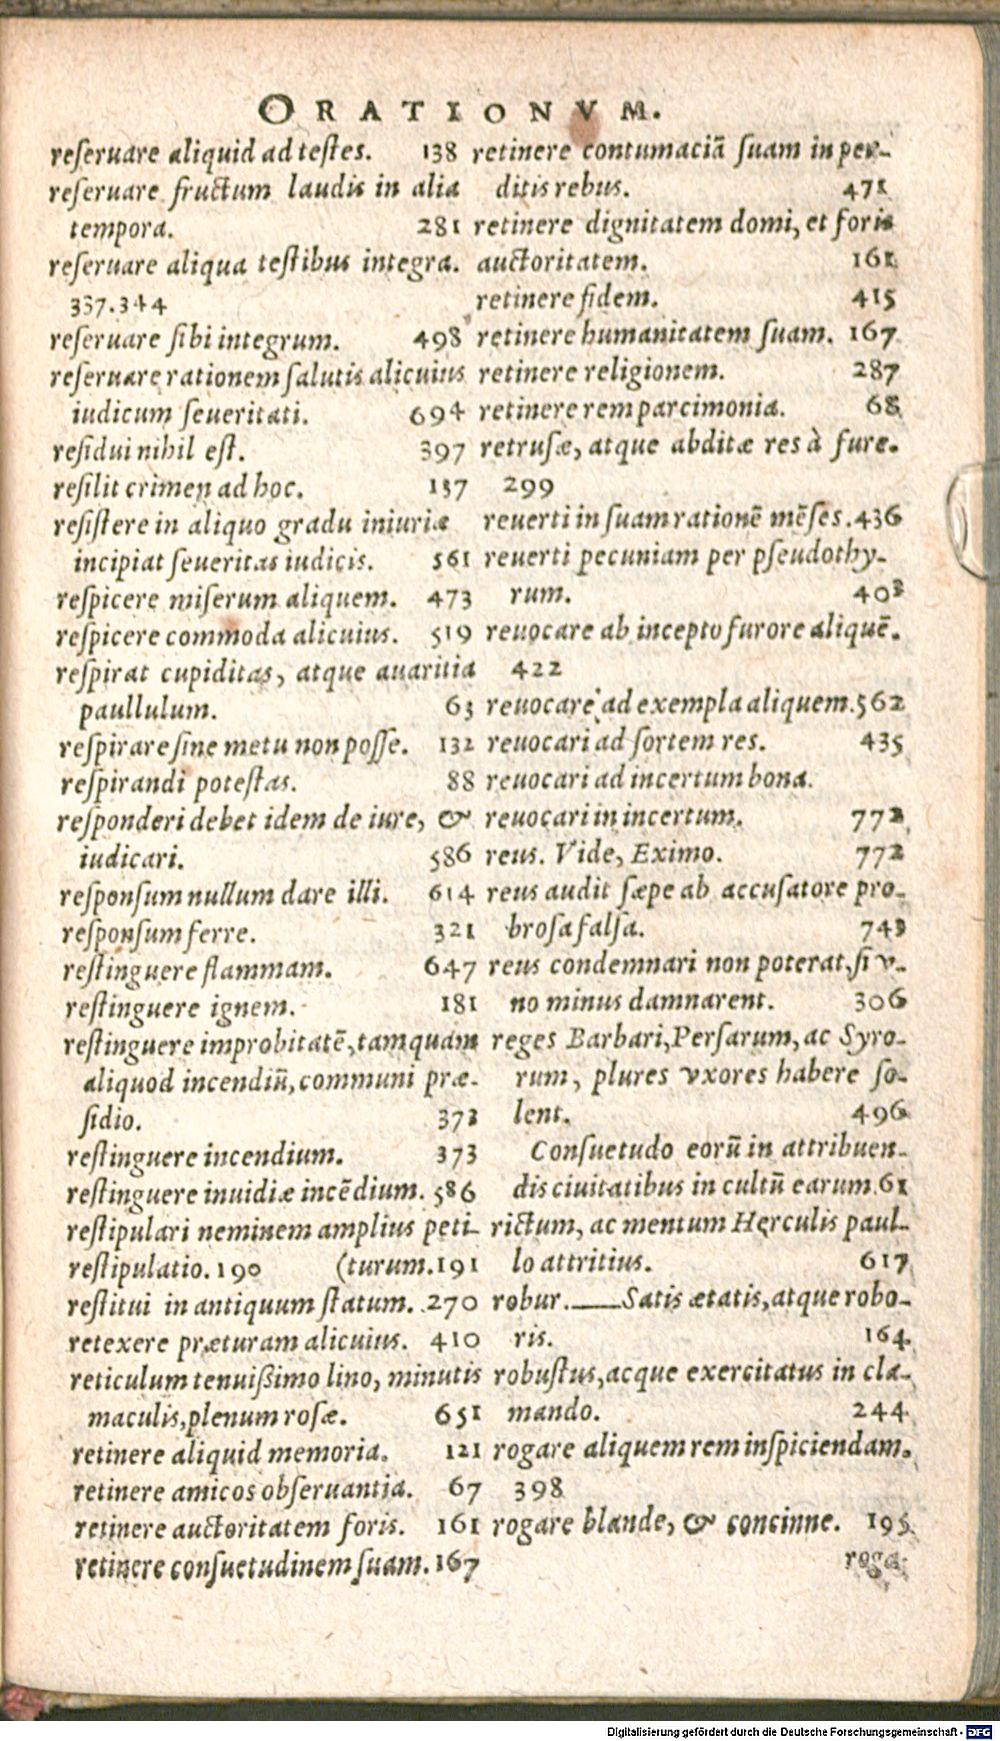 ORATIONVM.
reſeruare aliquid ad teſtes. 138
reſeruare fructum laudis in alia
tempora. 281
reſeruare aliqua teſtibus integra.
337.344
reſeruare ſibi integrum. 498
reſeruare rationem ſalutis alicuius
iudicum ſeueritati. 694
reſidui nihil eſt. 397
reſilit crimen ad hoc. 137
reſiſtere in aliquo gradu iniuriæ
incipiat ſeueritas iudicis. 561
reſpicere miſerum aliquem. 473
reſpicere commoda alicuius. 519
reſpirat cupiditas, atque auaritia
paullulum. 63
reſpirare ſine metu non poſſe. 132
reſpirandi poteſtas. 88
reſponderi debet idem de iure, &
iudicari. 586
reſponſum nullum dare illi. 614
reſponſum ferre. 321
reſtinguere flammam. 647
reſtinguere ignem. 181
reſtinguere improbitatē, tamquam
aliquod incendiū, communi præ-
ſidio. 373
reſtinguere incendium. 373
reſtinguere inuidiæ incēdium. 586
reſtipulari neminem amplius peti-
reſtipulatio. 190 (turum. 191
reſtitui in antiquum ſtatum. 270
retexere præturam alicuius. 410
reticulum tenuißimo lino, minutis
maculis, plenum roſæ. 651
retinere aliquid memoria. 121
retinere amicos obſeruantia. 67
retinere auctoritatem foris. 161
retinere conſuetudinem ſuam. 167
retinere contumaciā ſuam in per-
ditis rebus. 471
retinere dignitatem domi, et foris
auctoritatem. 161
retinere fidem. 415
retinere humanitatem ſuam. 167
retinere religionem. 287
retinere rem parcimonia. 68
retruſæ, atque abditæ res à fure.
299
reuerti in ſuam rationē mēſes. 436
reuerti pecuniam per pſeudothy-
rum. 403
reuocare ab incepto furore aliquē.
422
reuocare ad exempla aliquem. 562
reuocari ad ſortem res. 435
reuocari ad incertum bona.
reuocari in incertum. 772
reus. Vide, Eximo. 772
reus audit ſæpe ab accuſatore pro-
broſa falſa. 743
reus condemnari non poterat, ſi v-
no minus damnarent. 306
reges Barbari, Perſarum, ac Syro-
rum, plures vxores habere ſo-
lent. 496
Conſuetudo eorū in attribuen-
dis ciuitatibus in cultū earum. 61
rictum, ac mentum Herculis paul-
lo attritius. 617
robur. —— Satis ætatis, atque robo-
ris. 164
robuſtus, acque exercitatus in cla-
mando. 244
rogare aliquem rem inſpiciendam.
398
rogare blande, & concinne. 195
roga-
Digitalisierung gefördert durch die Deutsche Forschungsgemeinschaft - DFG